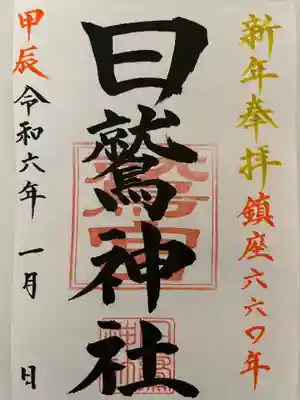 新年奉拝
鎮座六六〇年
日鷲神社
甲辰
令和六年 一月 日